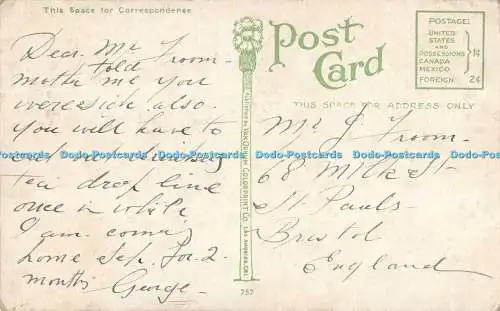 This Space for Correspondence
Dear Mr Froom-
mother told me you
were sick also.
You will have to
drinking
tea drop line
once in while
I am coming
home Sep. for 2.
months George-
PUBLISHED BY VAN ORNUM COLORPRINT CO. LOS ANGELES, CAL.
757
Post
Card
POSTAGE:
UNITED
STATES
AND
POSSESSIONS
CANADA
MEXICO
1¢
FOREIGN 2¢
THIS SPACE FOR ADDRESS ONLY
Mr J Froom-
68 Milk St-
St. Pauls
Bristol
England
Dodo-Postcards Dodo-Postcards Dodo-Postcards Dodo-Postcards Dodo-Postcards